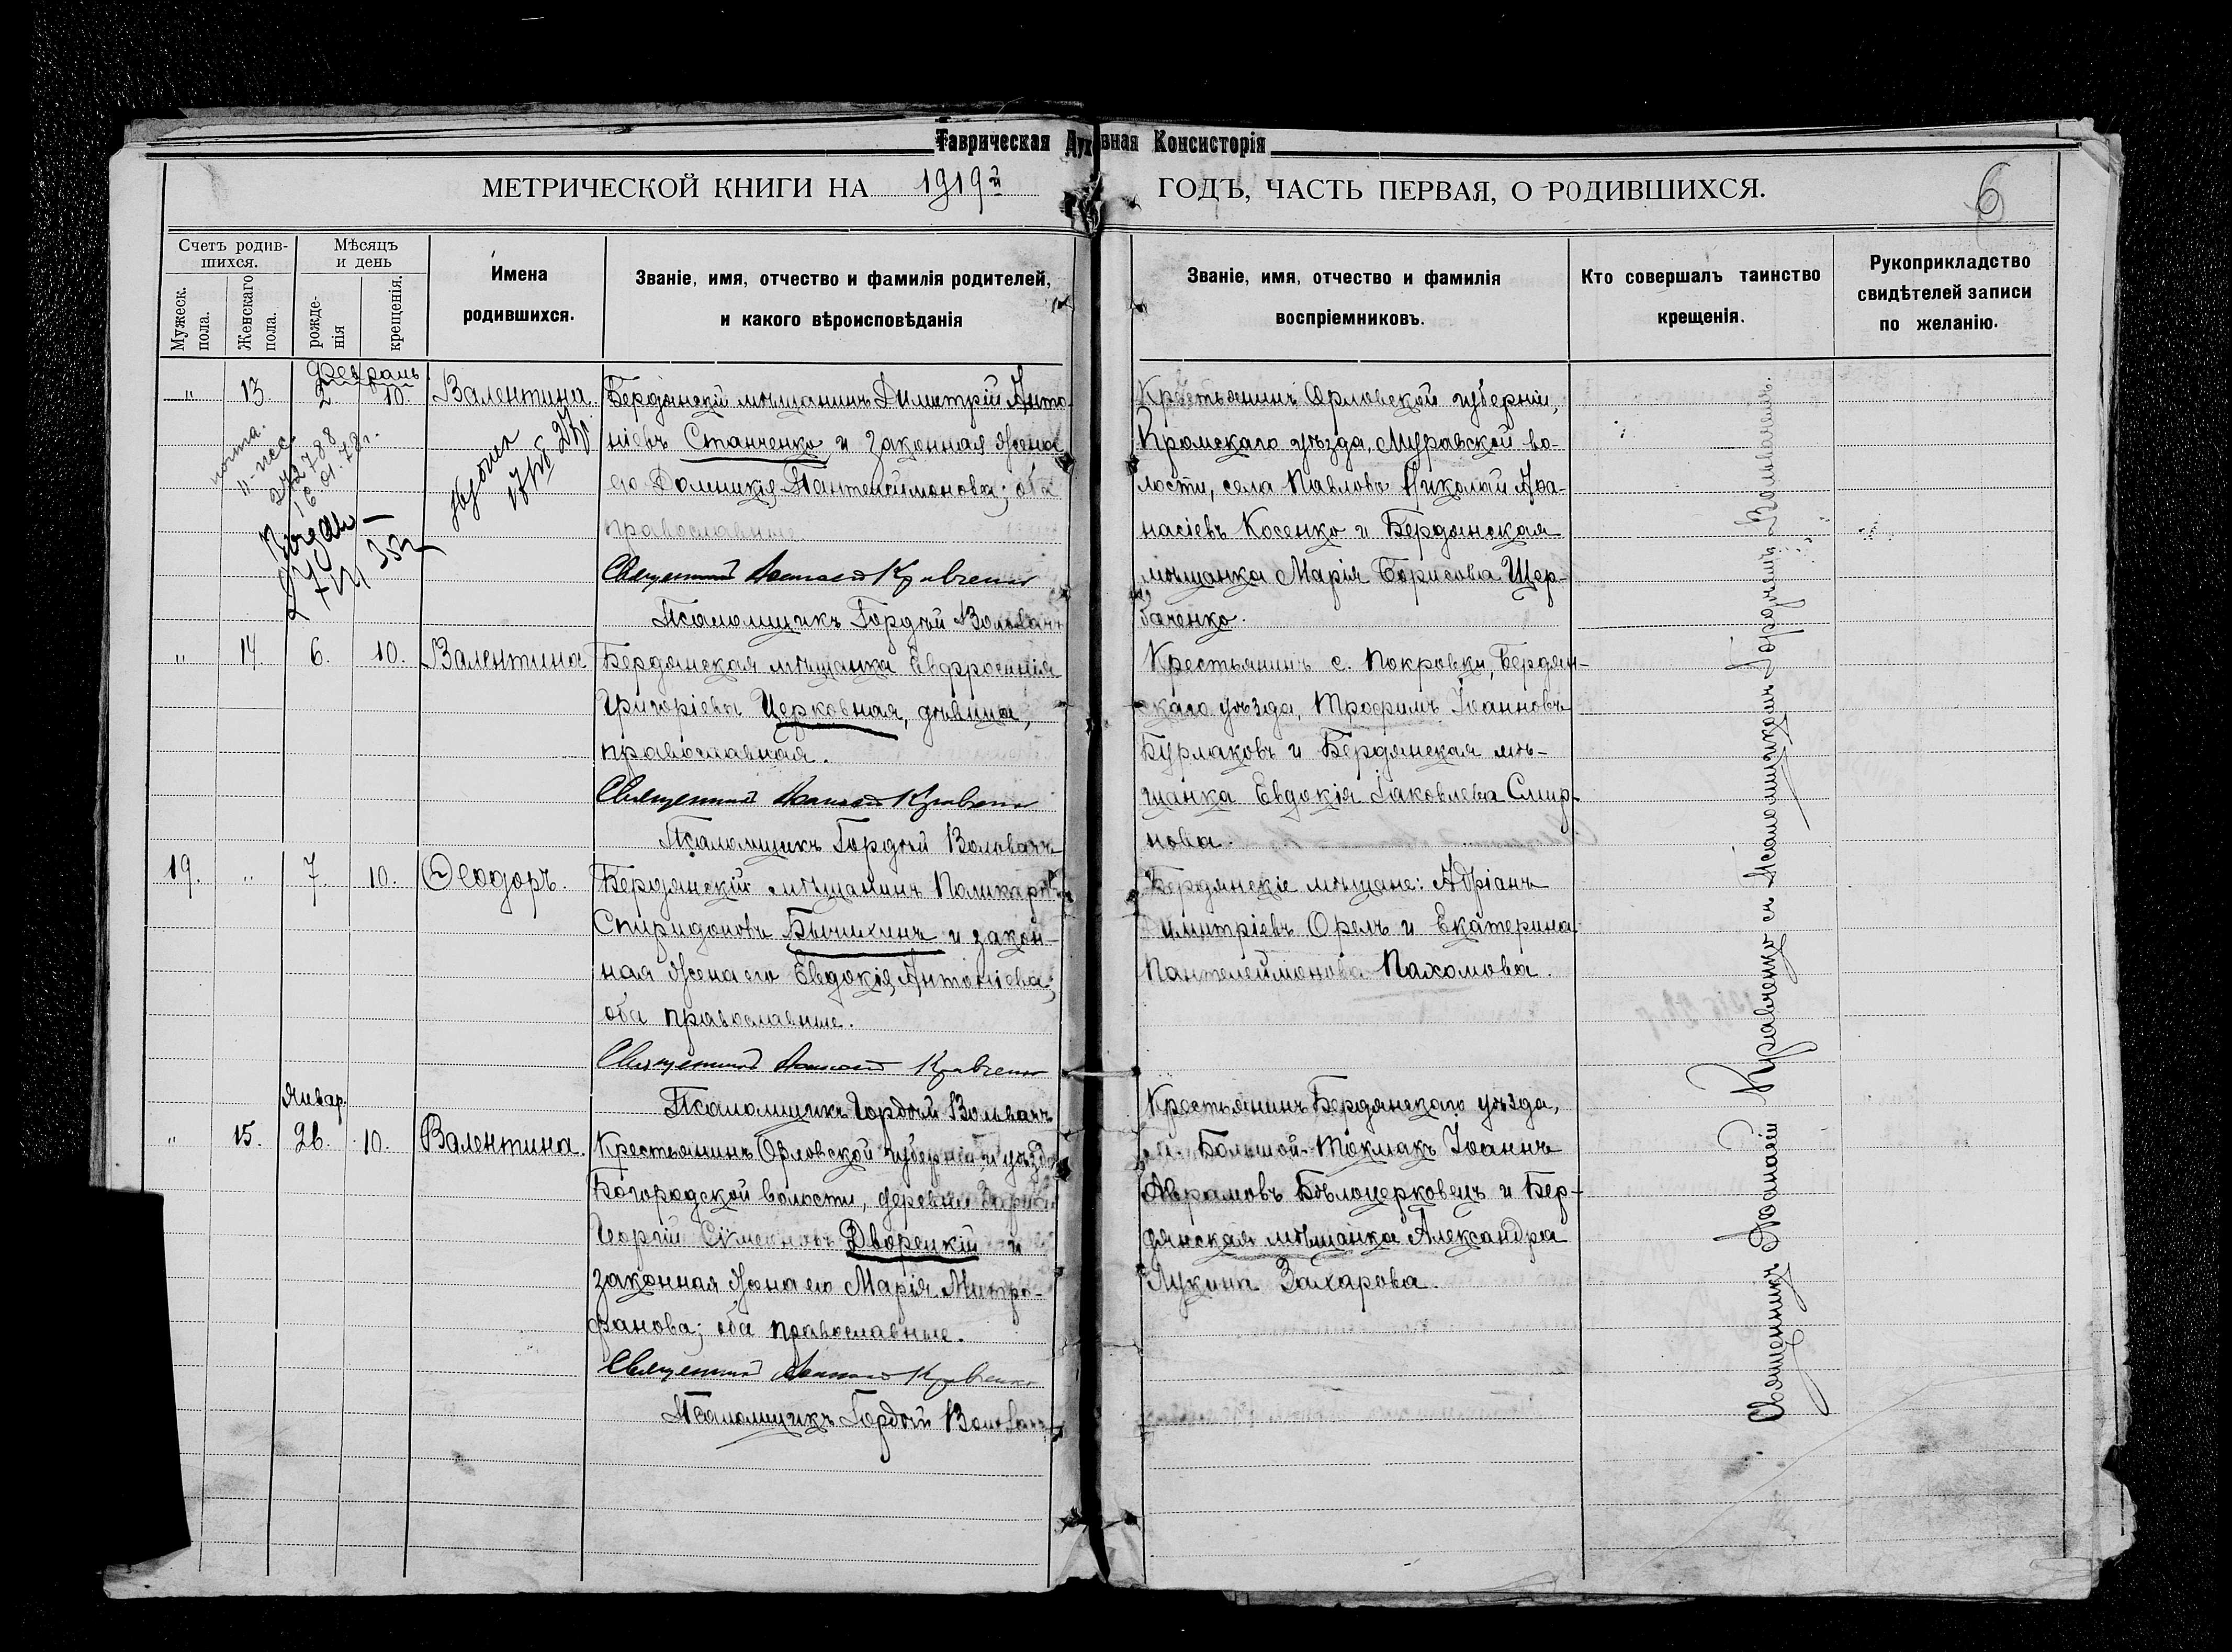 Таврическая Духовная Консисторія
МЕТРИЧЕСКОЙ КНИГИ НА 1919й ГОДЪ, ЧАСТЬ ПЕРВАЯ, О РОДИВШИХСЯ.
6
Счетъ родив-
шихся.
Мужеск.
пола.
Женскаго
пола.
Мѣсяцъ
и день
рожде-
нія
крещенія.
Имена
родившихся.
Званіе, имя, отчество и фамилія родителей,
и какого вѣроисповѣданія
Званіе, имя, отчество и фамилія
воспріемниковъ.
Кто совершалъ таинство
крещенія.
Рукоприкладство
свидѣтелей записи
по желанію.
Февраль
" 13. 2. 10. Валентина.
Бердянскій мѣщанинъ Димитрій Анто-
ніевъ Станченко и законная жена
его Домникія Пантелеимонова; оба
православные
Священникъ Іоанаѳій Кравченко
Псаломщикъ Гордѣй Воловачъ
Крестьянинъ Орловской губерніи,
Кромскаго уѣзда, Муравской во-
лости, села Павлова Николай Аѳа-
насіевъ Косенко и Бердянская
мѣщанка Марія Борисова Щер-
баченко.
" 14 6. 10. Валентина
Бердянская мѣщанка Евфросинія
Григоріева Церковная, дѣвица,
православная.
Священникъ Кравченко
Псаломщикъ Гордѣй Воловачъ
Крестьянинъ с. Покровки, Бердян-
скаго уѣзда, Трофимъ Іоанновъ
Бурлаковъ и Бердянская мѣ-
щанка Евдокія Іаковлева Смир-
нова.
19. " 7. 10. Ѳеодоръ.
Бердянскій мѣщанинъ Поликарпъ
Спиридоновъ Бычихинъ и закон-
ная жена его Евдокія Антоніева;
оба православные.
Священникъ Кравченко
Псаломщикъ Гордѣй Воловачъ
Бердянскіе мѣщане: Адріанъ
Димитріевъ Орелъ и Екатерина
Пантелеимонова Пахомова.
Январ.
" 15. 26. 10. Валентина.
Крестьянинъ Орловской губерніи и уѣзда
Богородской волости, деревни
Георгій Симеоновъ Дворецкій и
законная жена его Марія Митро-
фанова; оба православные.
Священникъ Кравченко
Псаломщикъ Гордѣй Воловачъ
Крестьянинъ Бердянскаго уѣзда,
Большой-Токмакъ Іоаннъ
Аврамовъ Бѣлоцерковецъ и Бер-
дянская мѣщанка Александра
Лукина Захарова.
Священникъ Кравченко съ Псаломщикомъ Гордѣемъ Воловачемъ.